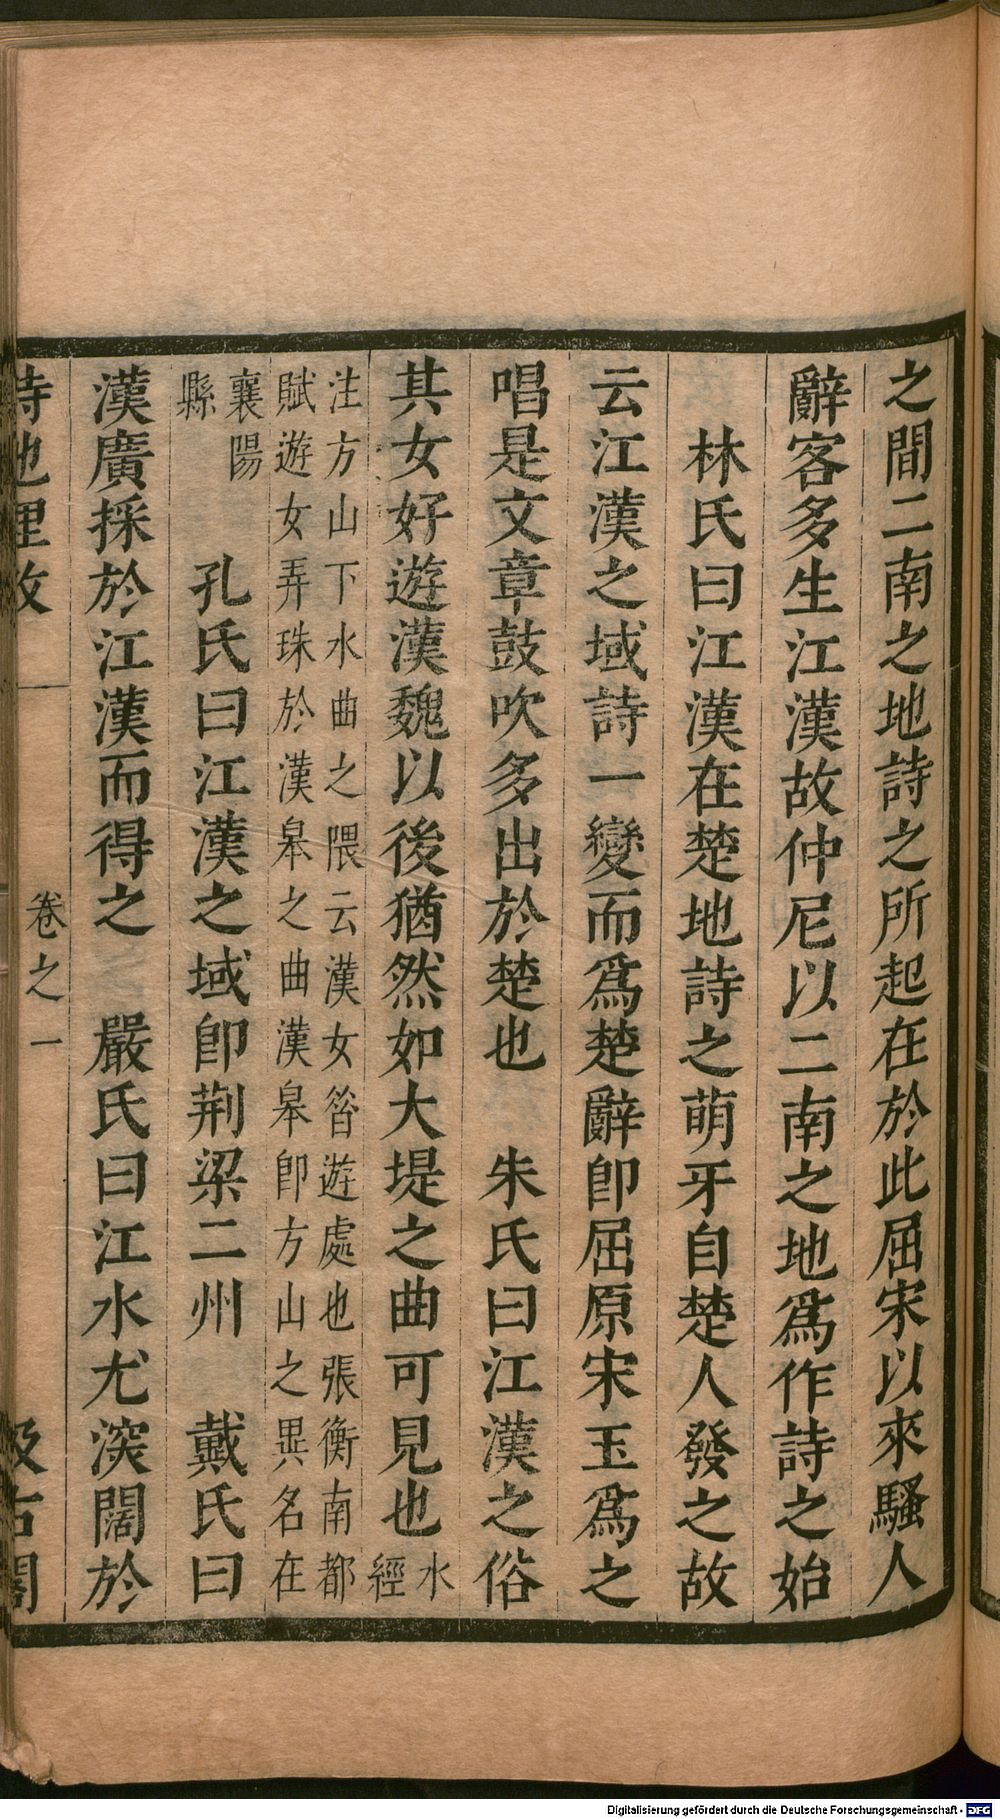 之間二南之地詩之所起在於此屈宋以來騷人
辭客多生江漢故仲尼以二南之地爲作詩之始
林氏曰江漢在楚地詩之萌牙自楚人發之故
云江漢之域詩一變而爲楚辭卽屈原宋玉爲之
唱是文章鼓吹多出於楚也　朱氏曰江漢之俗
其女好遊漢魏以後猶然如大堤之曲可見也水
經
注方山下水曲之隈云漢女昝遊處也張衡南都
賦遊女弄珠於漢皋之曲漢皋卽方山之異名在
襄陽
縣
孔氏曰江漢之域卽荆梁二州　戴氏曰
漢廣採於江漢而得之　嚴氏曰江水尤深闊於
詩地理攷
卷之一
汲古閣
Digitalisierung gefördert durch die Deutsche Forschungsgemeinschaft - DFG